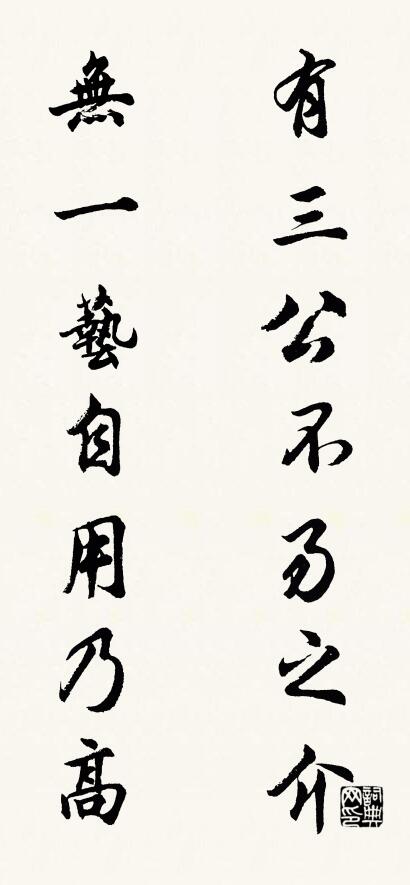 有三公不易之介
無一藝自用乃高
詞典網印